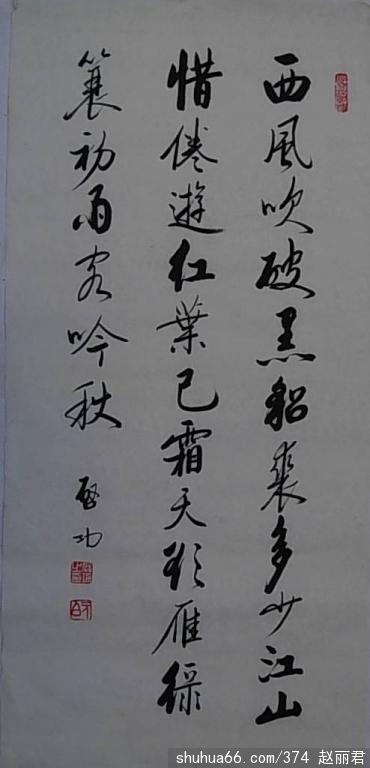 西風吹破黑貂裘多少江山
惜倦遊紅葉已霜天欲雁綠
蓑初雨客吟秋
啟功
shuhua66.com/374 赵丽君